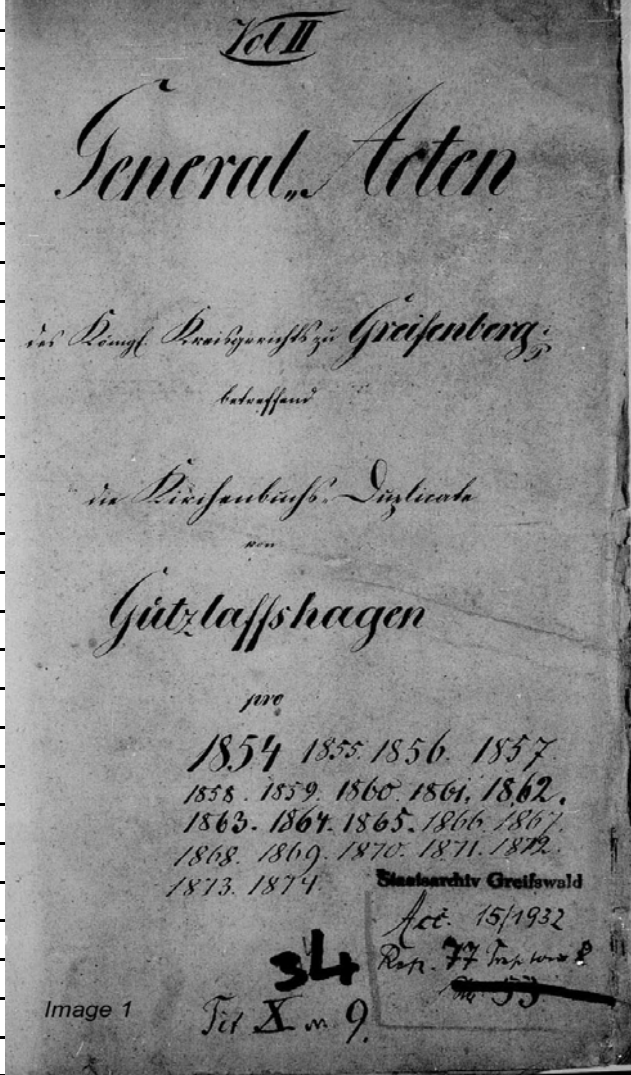 Vol II
General-Acten
des Königl. Kreisgerichts zu Greifenberg;
betreffend
die Kirchenbuchs-Duplicate
von
Gützlaffshagen
pro
1854 1855. 1856. 1857.
1858. 1859. 1860. 1861. 1862.
1863. 1864. 1865. 1866. 1867.
1868. 1869. 1870. 1871. 1872.
1873. 1874.
Staatsarchiv Greifswald
Acc. 15/1932
Rep. 77 Treptow
53
34
Image 1
Tit X nr 9.